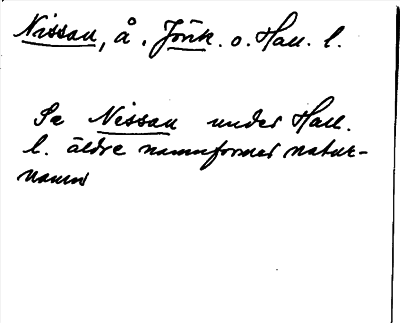 Nissan, å. Jönk. o. Hall. l.
Se Nissan under Hall.
l. äldre namnformer natur-
namn